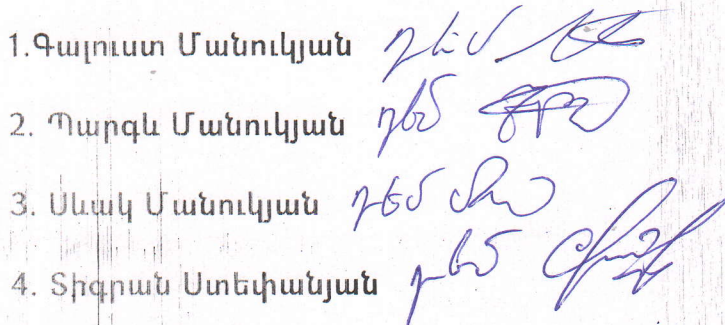 1.Գալուստ Մանուկյան դեմ
2. Պարգև Մանուկյան դեմ
3. Սևակ Մանուկյան դեմ
4. Տիգրան Ստեփանյան դեմ